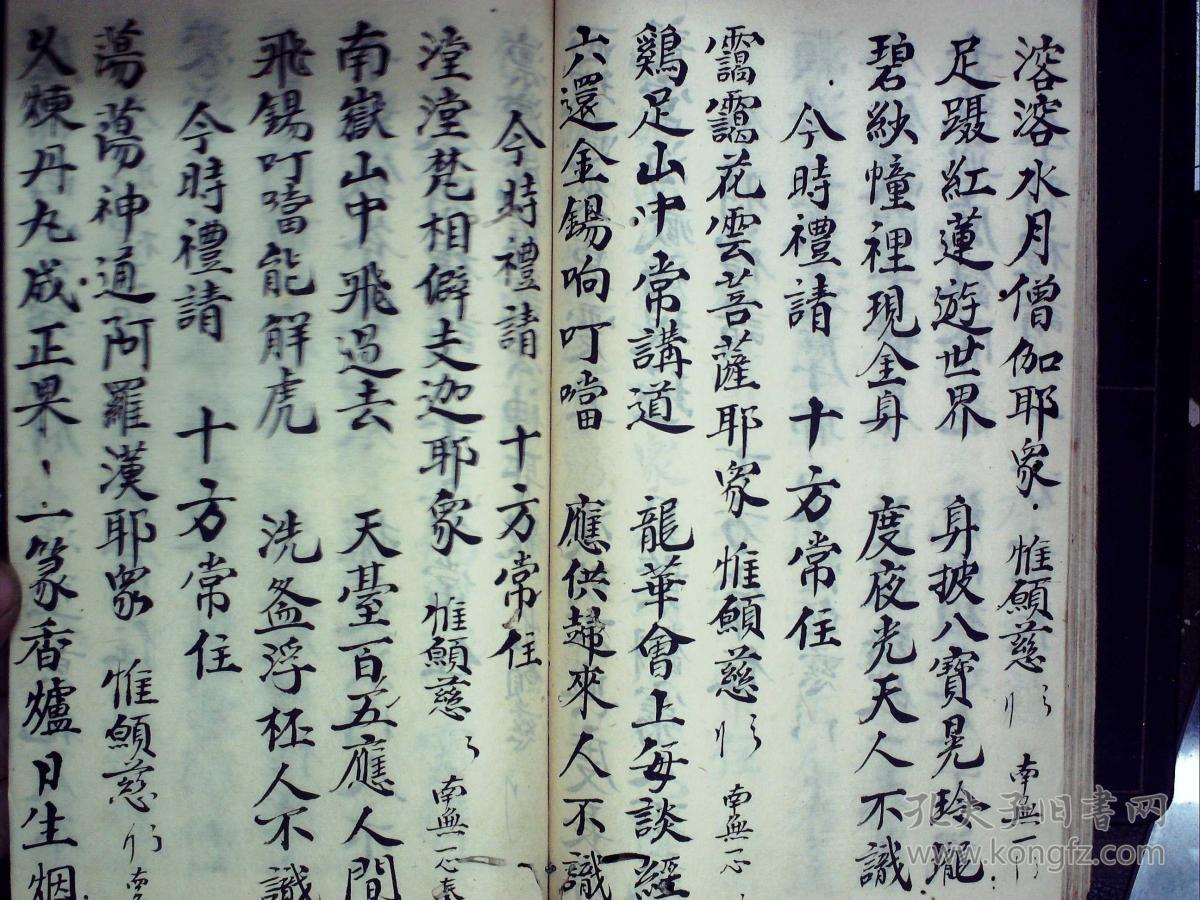 溶溶水月僧伽耶衆 惟願慈 南無一
足蹑紅蓮遊世界 身披八寶晃玲瓏
碧紗幢裡現金身 度夜光天人不識
今時禮請 十方常住
靄靄花雲菩薩耶衆 惟願慈 南無一心
鷄足山中常講道 龍華會上每談經
六還金錫响叮噹 應供歸來人不識
今時禮請 十方常住
滢滢梵相僻支迦耶衆 惟願慈 南無一心奉
南嶽山中飛過去 天臺百五應人間
飛錫叮噹能解虎 洗盋浮杯人不識
今時禮請 十方常住
蕩蕩神通阿羅漢耶衆 惟願慈 南
火煉丹丸成正果 一篆香爐日生烟
孔夫子旧书网
www.kongfz.com